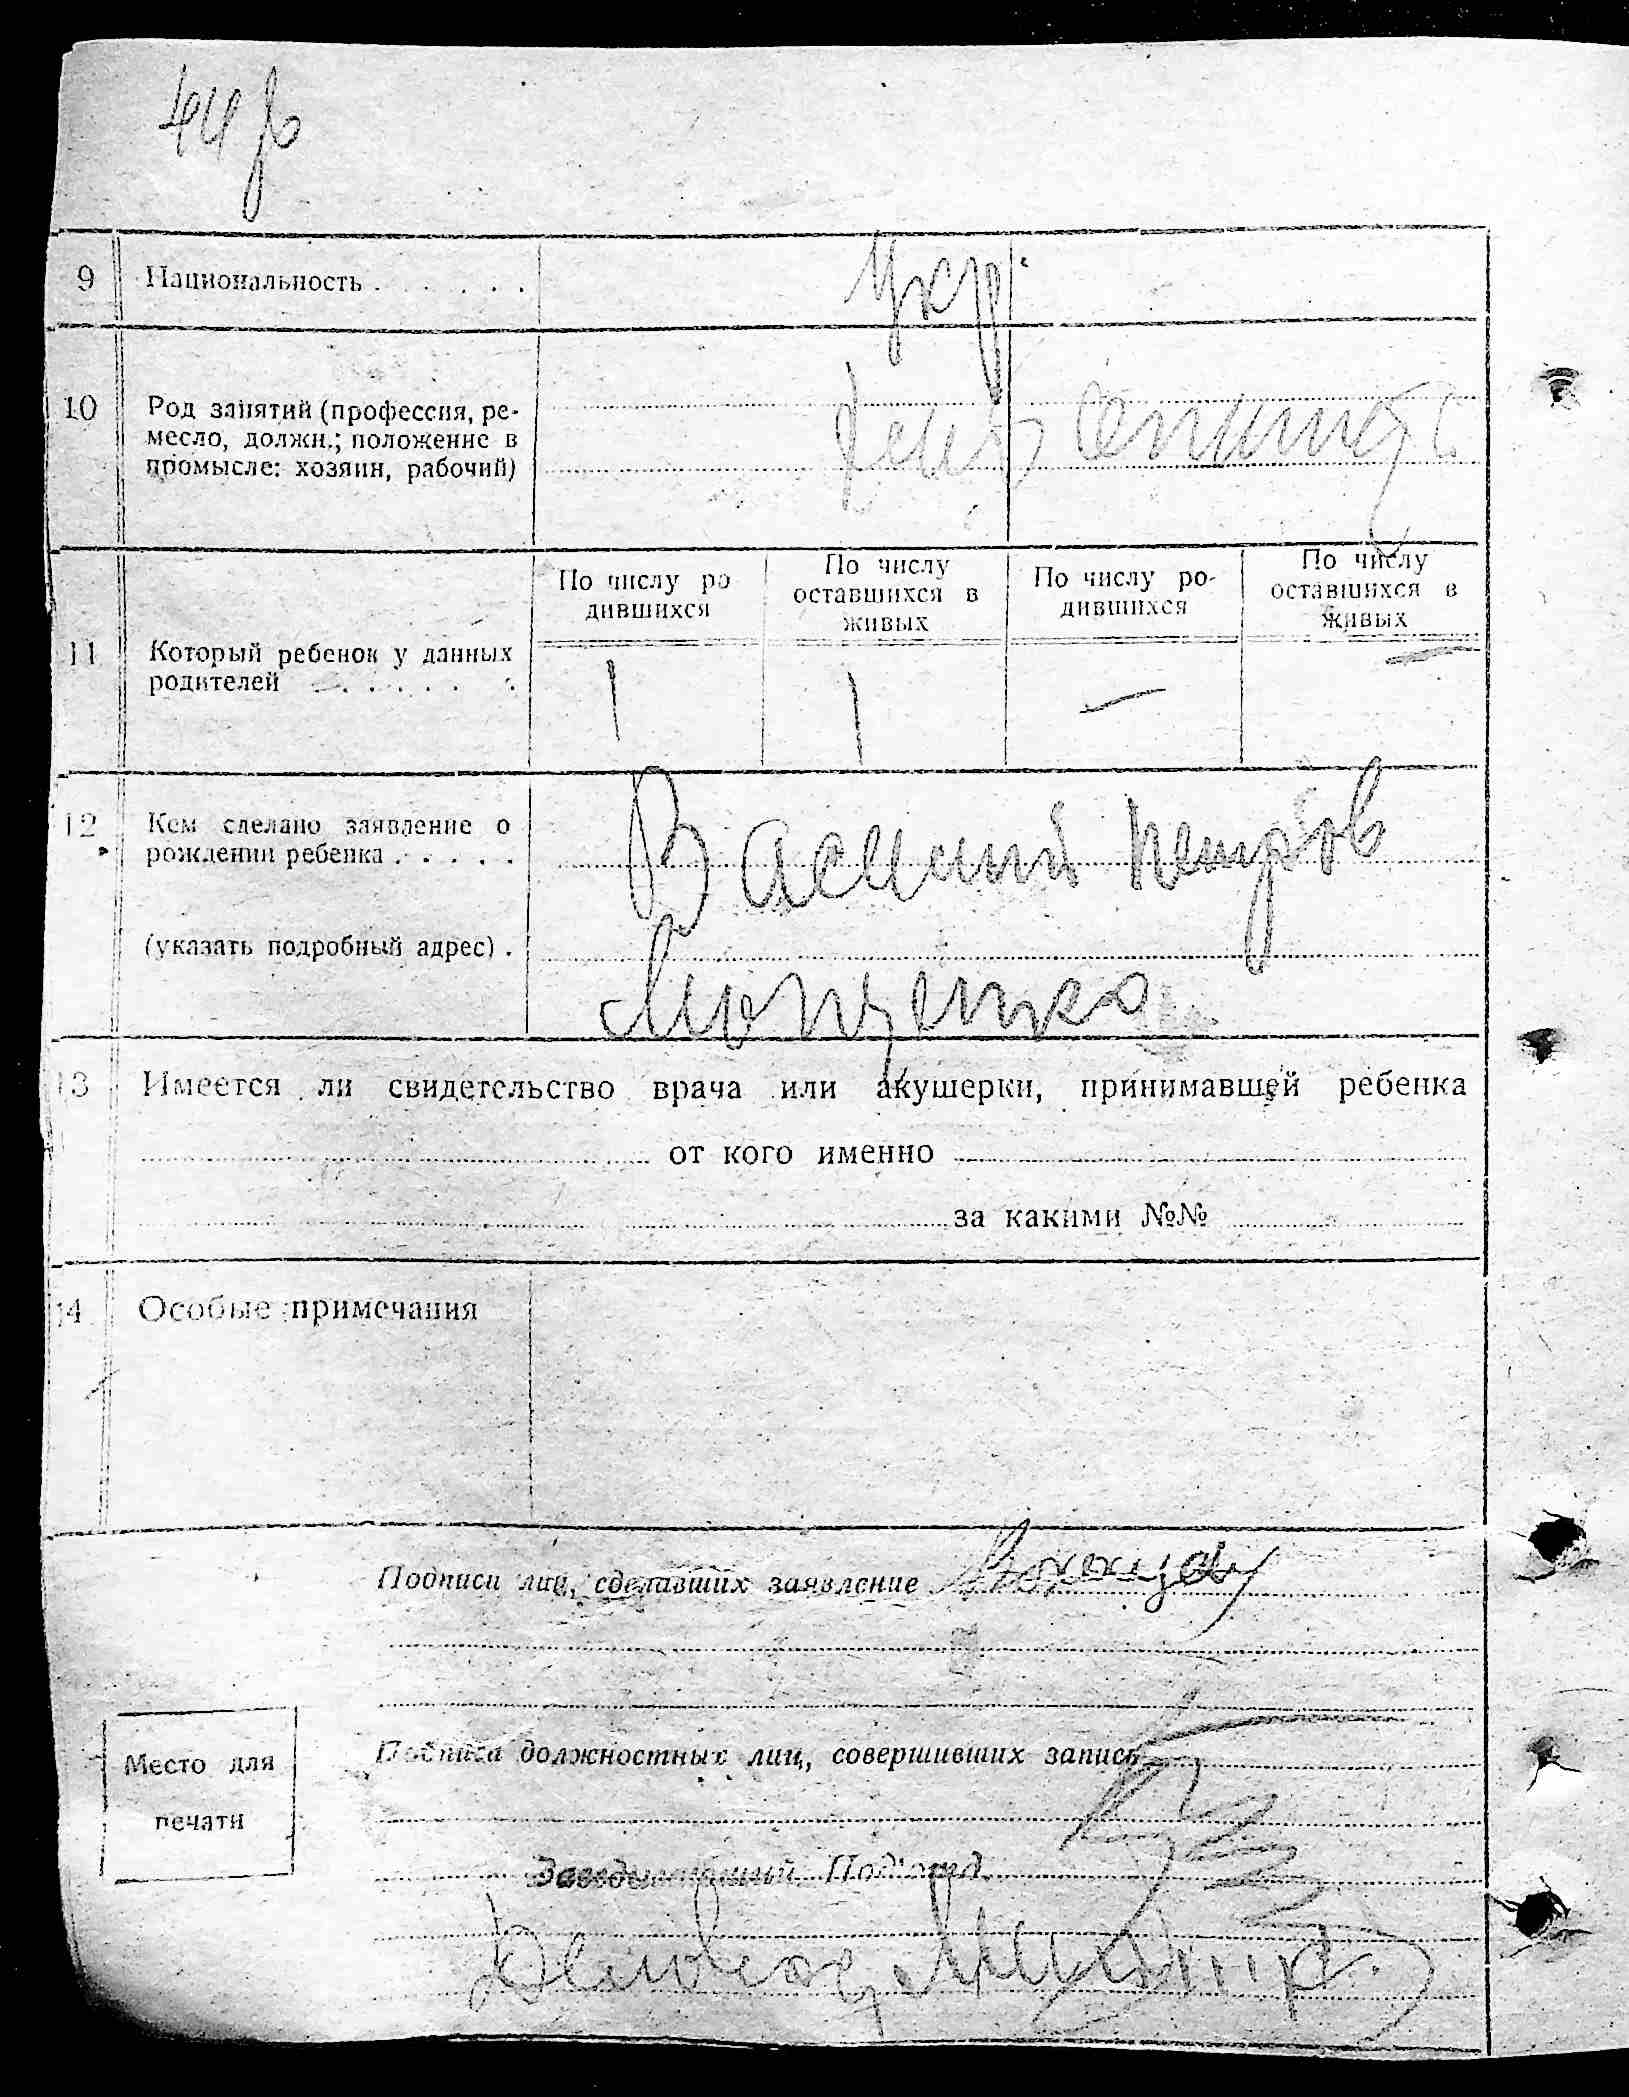 9 Национальность . . . . . . укр.
10 Род занятий (профессия, ре-
месло, должн.; положение в
промысле: хозяин, рабочий)
По числу ро
дившихся
По числу
оставшихся в
живых
По числу ро-
дившихся
По числу
оставшихся в
живых
11 Который ребенок у данных
родителей . . . . . .
1 1 — —
12 Кем сделано заявление о
рождении ребенка . . . . . Василий Петров
(указать подробный адрес) .
13 Имеется ли свидетельство врача или акушерки, принимавшей ребенка
от кого именно
за какими №№
14 Особые примечания
Подписи лиц, сделавших заявление
Подписи должностных лиц, совершивших запись
Место для
печати
Заведывающий Под'отд.